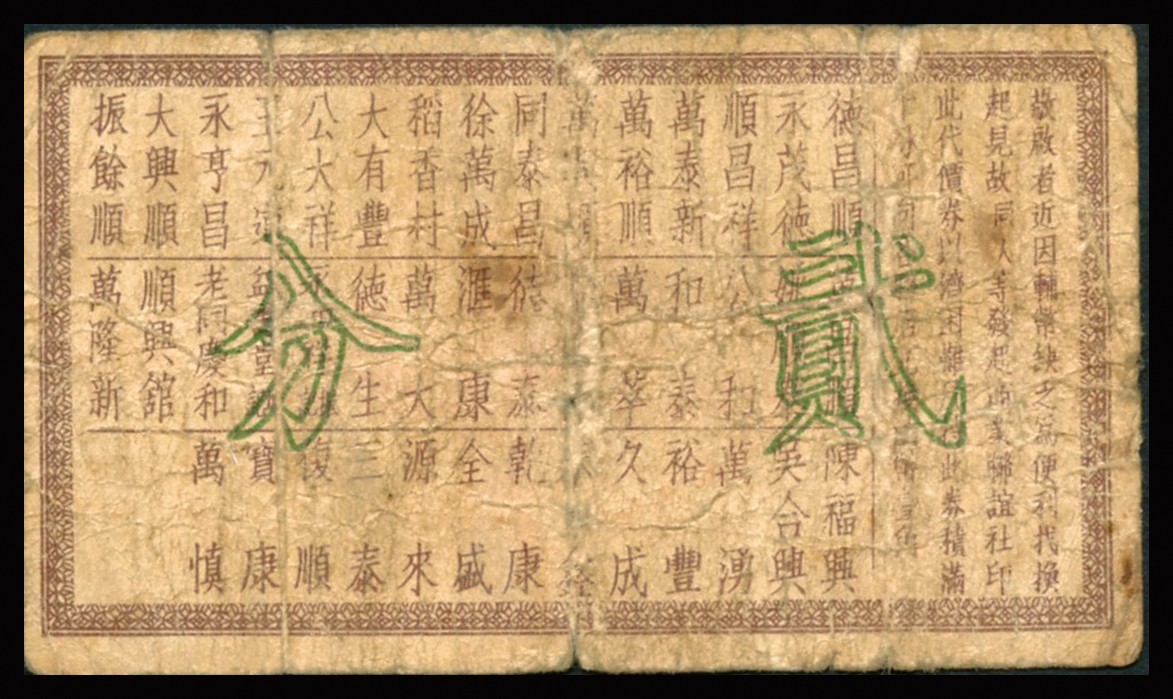 敬啟者近因輔幣缺乏為便利代換
起見故同人等發起商業聯誼社印
此代價券以濟困難 此券積滿
德昌順 陳福興
永茂德 英合興
順昌祥 公和 萬湧
萬泰新 和泰 裕豐
萬裕順 萬萃 久成
萬
同泰昌 德泰 乾康
徐萬成 滙康 全盛
稻香村 萬大 源來
大有豐 德生 三泰
公大祥 復順
寶康
永亨昌 老同慶和 萬慎
大興順 順興舘
振餘順 萬隆新
貳分